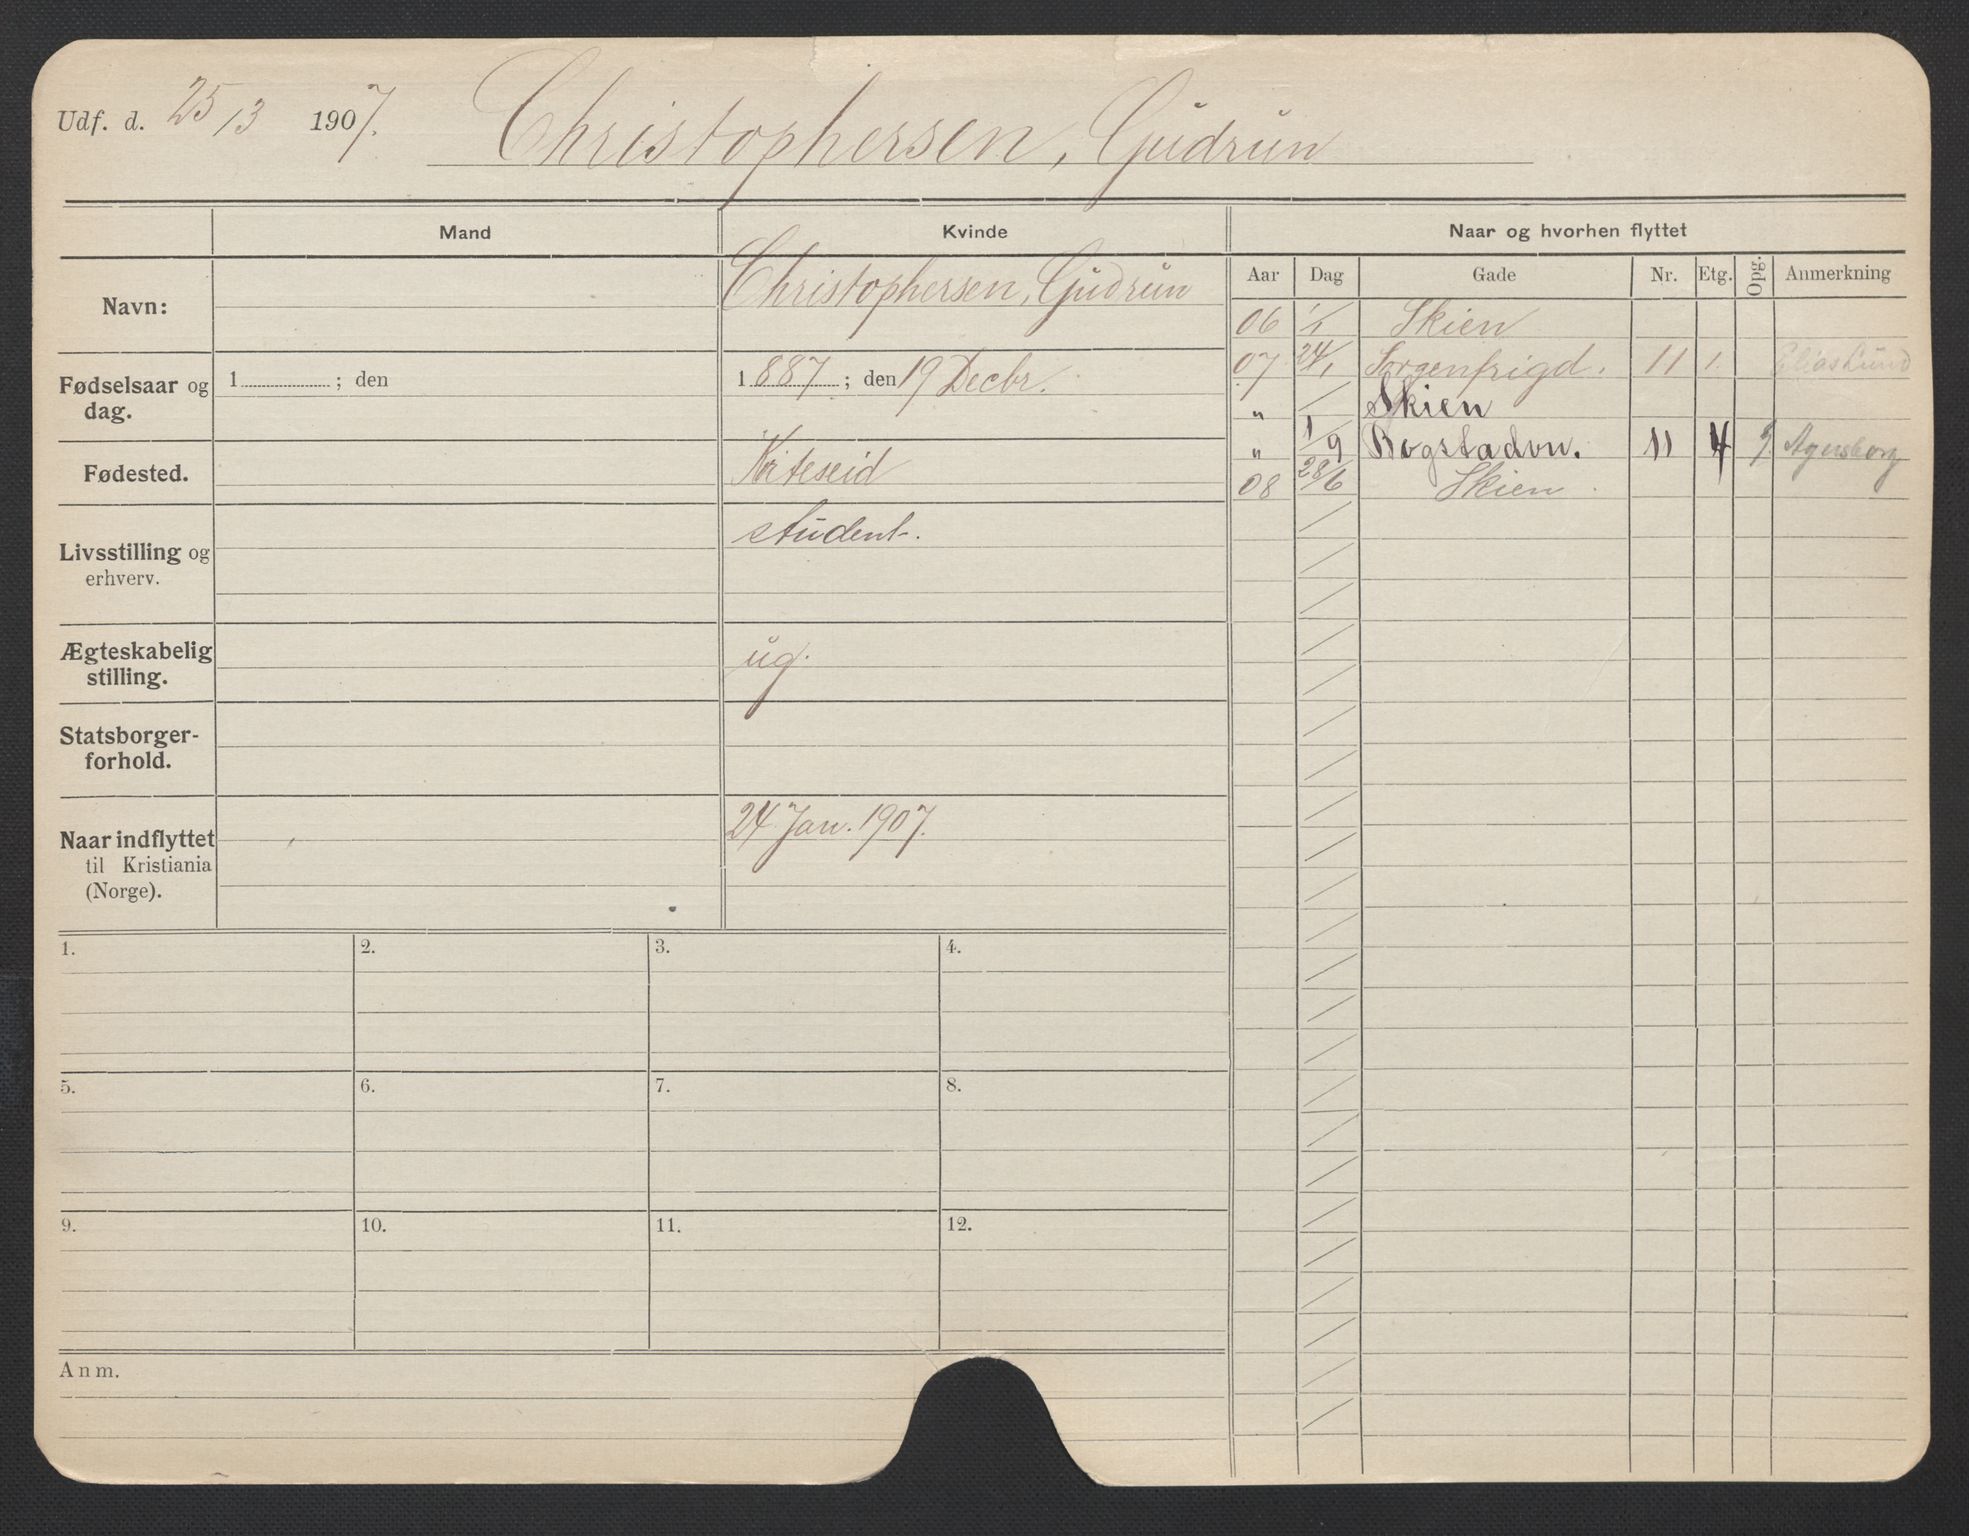 Udf. d. 25/3 1907. Christophersen, Gudrun
Mand Kvinde Naar og hvorhen flyttet
Aar Dag Gade Nr. Etg. Opg. Anmerkning
Navn: Christophersen, Gudrun
06 1/1 Skien
07 24/1 Sorgenfrigd. 11 1. Elias Lund
Fødselsaar og dag. 1 ; den 1887 ; den 19 Decbr.
„ Skien
„ 1/9 Bogstadvn. 11 4
Fødested. Kviteseid
08 28/6 Skien
Livsstilling og erhverv. student.
Ægteskabelig stilling. ug.
Statsborger-
forhold.
Naar indflyttet
til Kristiania
(Norge). 24 Jan. 1907.
1. 2. 3. 4.
5. 6. 7. 8.
9. 10. 11. 12.
Anm.